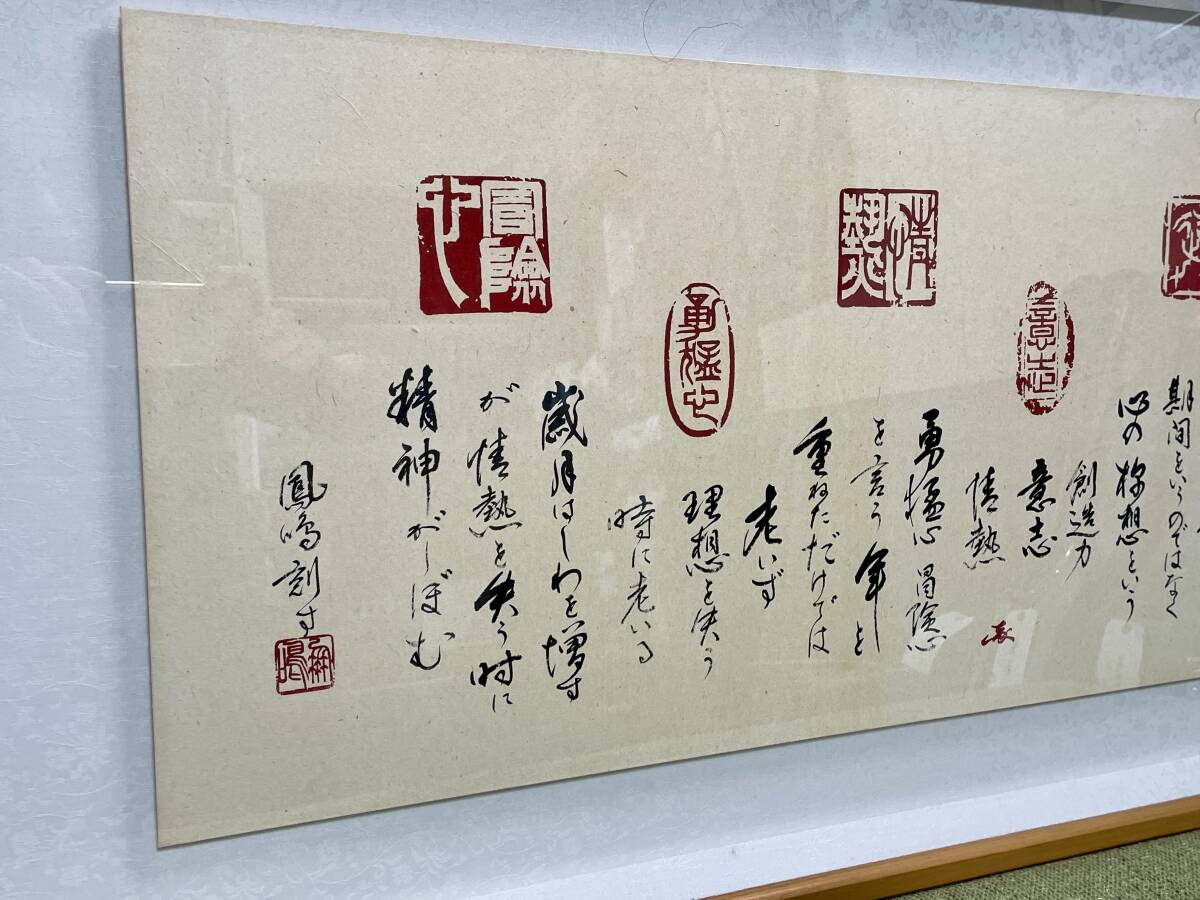 期間というのではなく
心の様想という
創造力
意志
情熱
勇猛心 冒険心
を言う 年を
重ねただけでは
老いず
理想を失う
時に老いる
歳月はしわを増す
が情熱を失う時に
精神がしぼむ
鳳鳴刻す
意志
情熱
勇猛心
冒険心